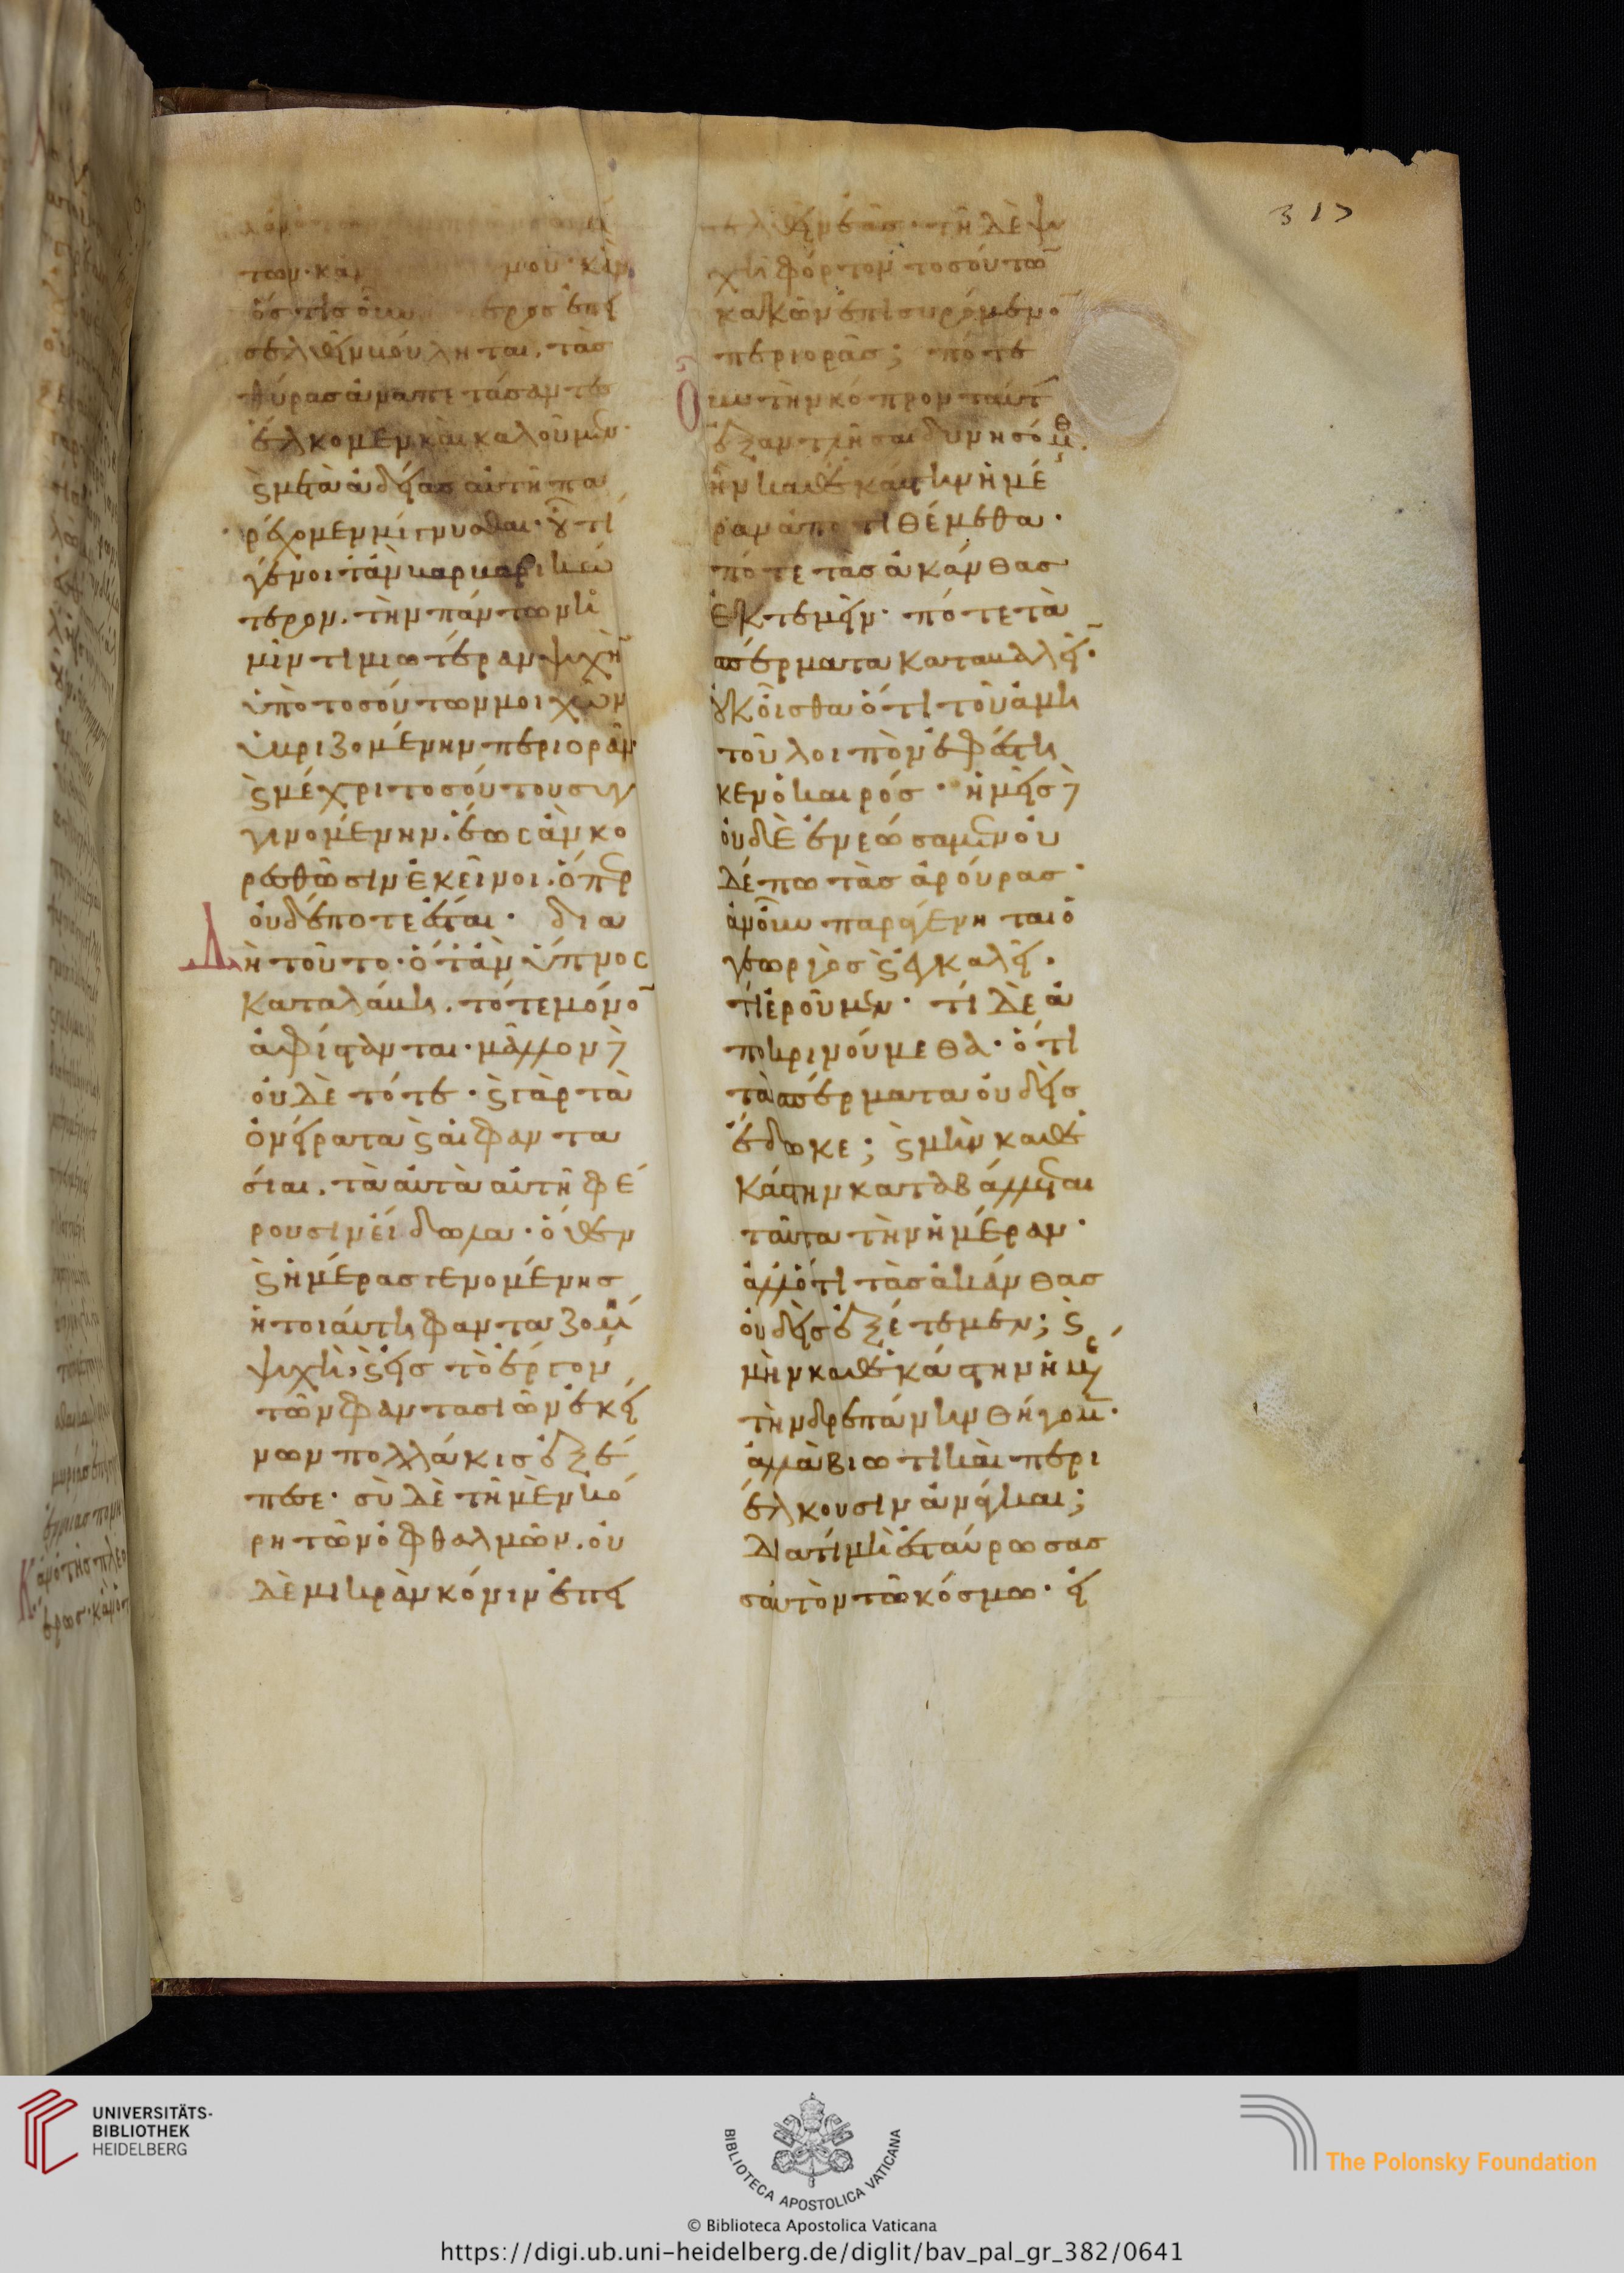 317
των· κἂν μου· κἂν
ὅστις οὖν ερος ἐπει
σελθεῖν βούληται. τὰς
θύρας ἀναπετάσαντες
ἕλκομεν καὶ καλοῦμεν·
ϛ μετὰ ἀδείας αὐτῆ πα
ρέχομεν μίγνυσθαι· οὗ τί
γένοιτ' ἂν βαρβαρικώ
τερον. τὴν πάντων ἡ
μῖν τιμιωτέραν ψυχὴν
ὑπὸ τοσούτων μοιχῶν
ὑβριζομένην περιορᾶν·
ϛ μέχρι τοσούτου συγ
γινομένην. ἕως ἂν κο
ρεσθῶσιν ἐκεῖνοι. ὅπερ
οὐδέποτε ἔσται· δια
Δὴ τοῦτο· ὅταν ὕπνος
καταλάβη. τότε μόνον
ἀφίστανται· μᾶλλον δὲ
οὐδὲ τότε· ϛ γὰρ τὰ
ὀνείρατα ϛ αἱ φαντα
σίαι. τὰ αὐτὰ αὐτῆ φέ
ρουσιν εἴδωλα· ὅθεν
ϛ ἡμέρας γενομένης
ἡ τοιαύτη φανταζομένη
ψυχὴ, ϛ εἰς τὸ ἔργον
τῶν φαντασιῶν ἐκεί
νων πολλάκις ἐξέ
πεσε· σὺ δὲ τῆ μὲν κό
ρη τῶν ὀφθαλμῶν. οὐ
δὲ μικρὰν κόνιν ἐπει
σελθεῖν ἐᾶς· τὴν δὲ ψυ
χὴ φόρτον τοσούτων
κακῶν ἐπισυρόμενον
περιορᾶς; πότε
οὖν τὴν κόπρον ταύτην
ἐξαντλῆσαι δυνησόμεθα·
ἣν καθ' ἑκάστην ἡμέ
ραν ἀποτιθέμεθα·
πότε τὰς ἀκάνθας
ἐκτεμεῖν· πότε τὰ
σπέρματα καταβαλεῖν·
οὐκ οἶσθα ὅτι τοῦ ἀμη
τοῦ λοιπὸν ἐφέστη
κεν ὁ καιρός· ἡμεῖς δὲ
οὐδὲ ἐνεώσαμεν οὐ
δέπω τὰς ἀρούρας·
ἂν οὖν παραγένηται ὁ
γεωργὸς ϛ ἐγκαλῆ·
τί ἐροῦμεν· τί δὲ ἀ
ποκρινούμεθα· ὅτι
τὰ σπέρματα οὐδεὶς
ἔδωκε; ϛ μὴν καθ' ἑ
κάστην καταβάλλεται
ταῦτα τὴν ἡμέραν·
ἀλλ' ὅτι τὰς ἀκάνθας
οὐδεὶς ἐξέτεμεν; ϛ
μὴν καθ' ἑκάστην ἡμέραν
τὴν δρεπάνην θήγομεν·
ἀλλὰ βιωτικαὶ περι
έλκουσιν ἀνάγκαι;
Διατί μὴ ἐσταύρωσας
σαυτὸν τῶ κόσμω· εἰ
UNIVERSITÄTS-
BIBLIOTHEK
HEIDELBERG
BIBLIOTECA APOSTOLICA VATICANA
© Biblioteca Apostolica Vaticana
The Polonsky Foundation
https://digi.ub.uni-heidelberg.de/diglit/bav_pal_gr_382/0641